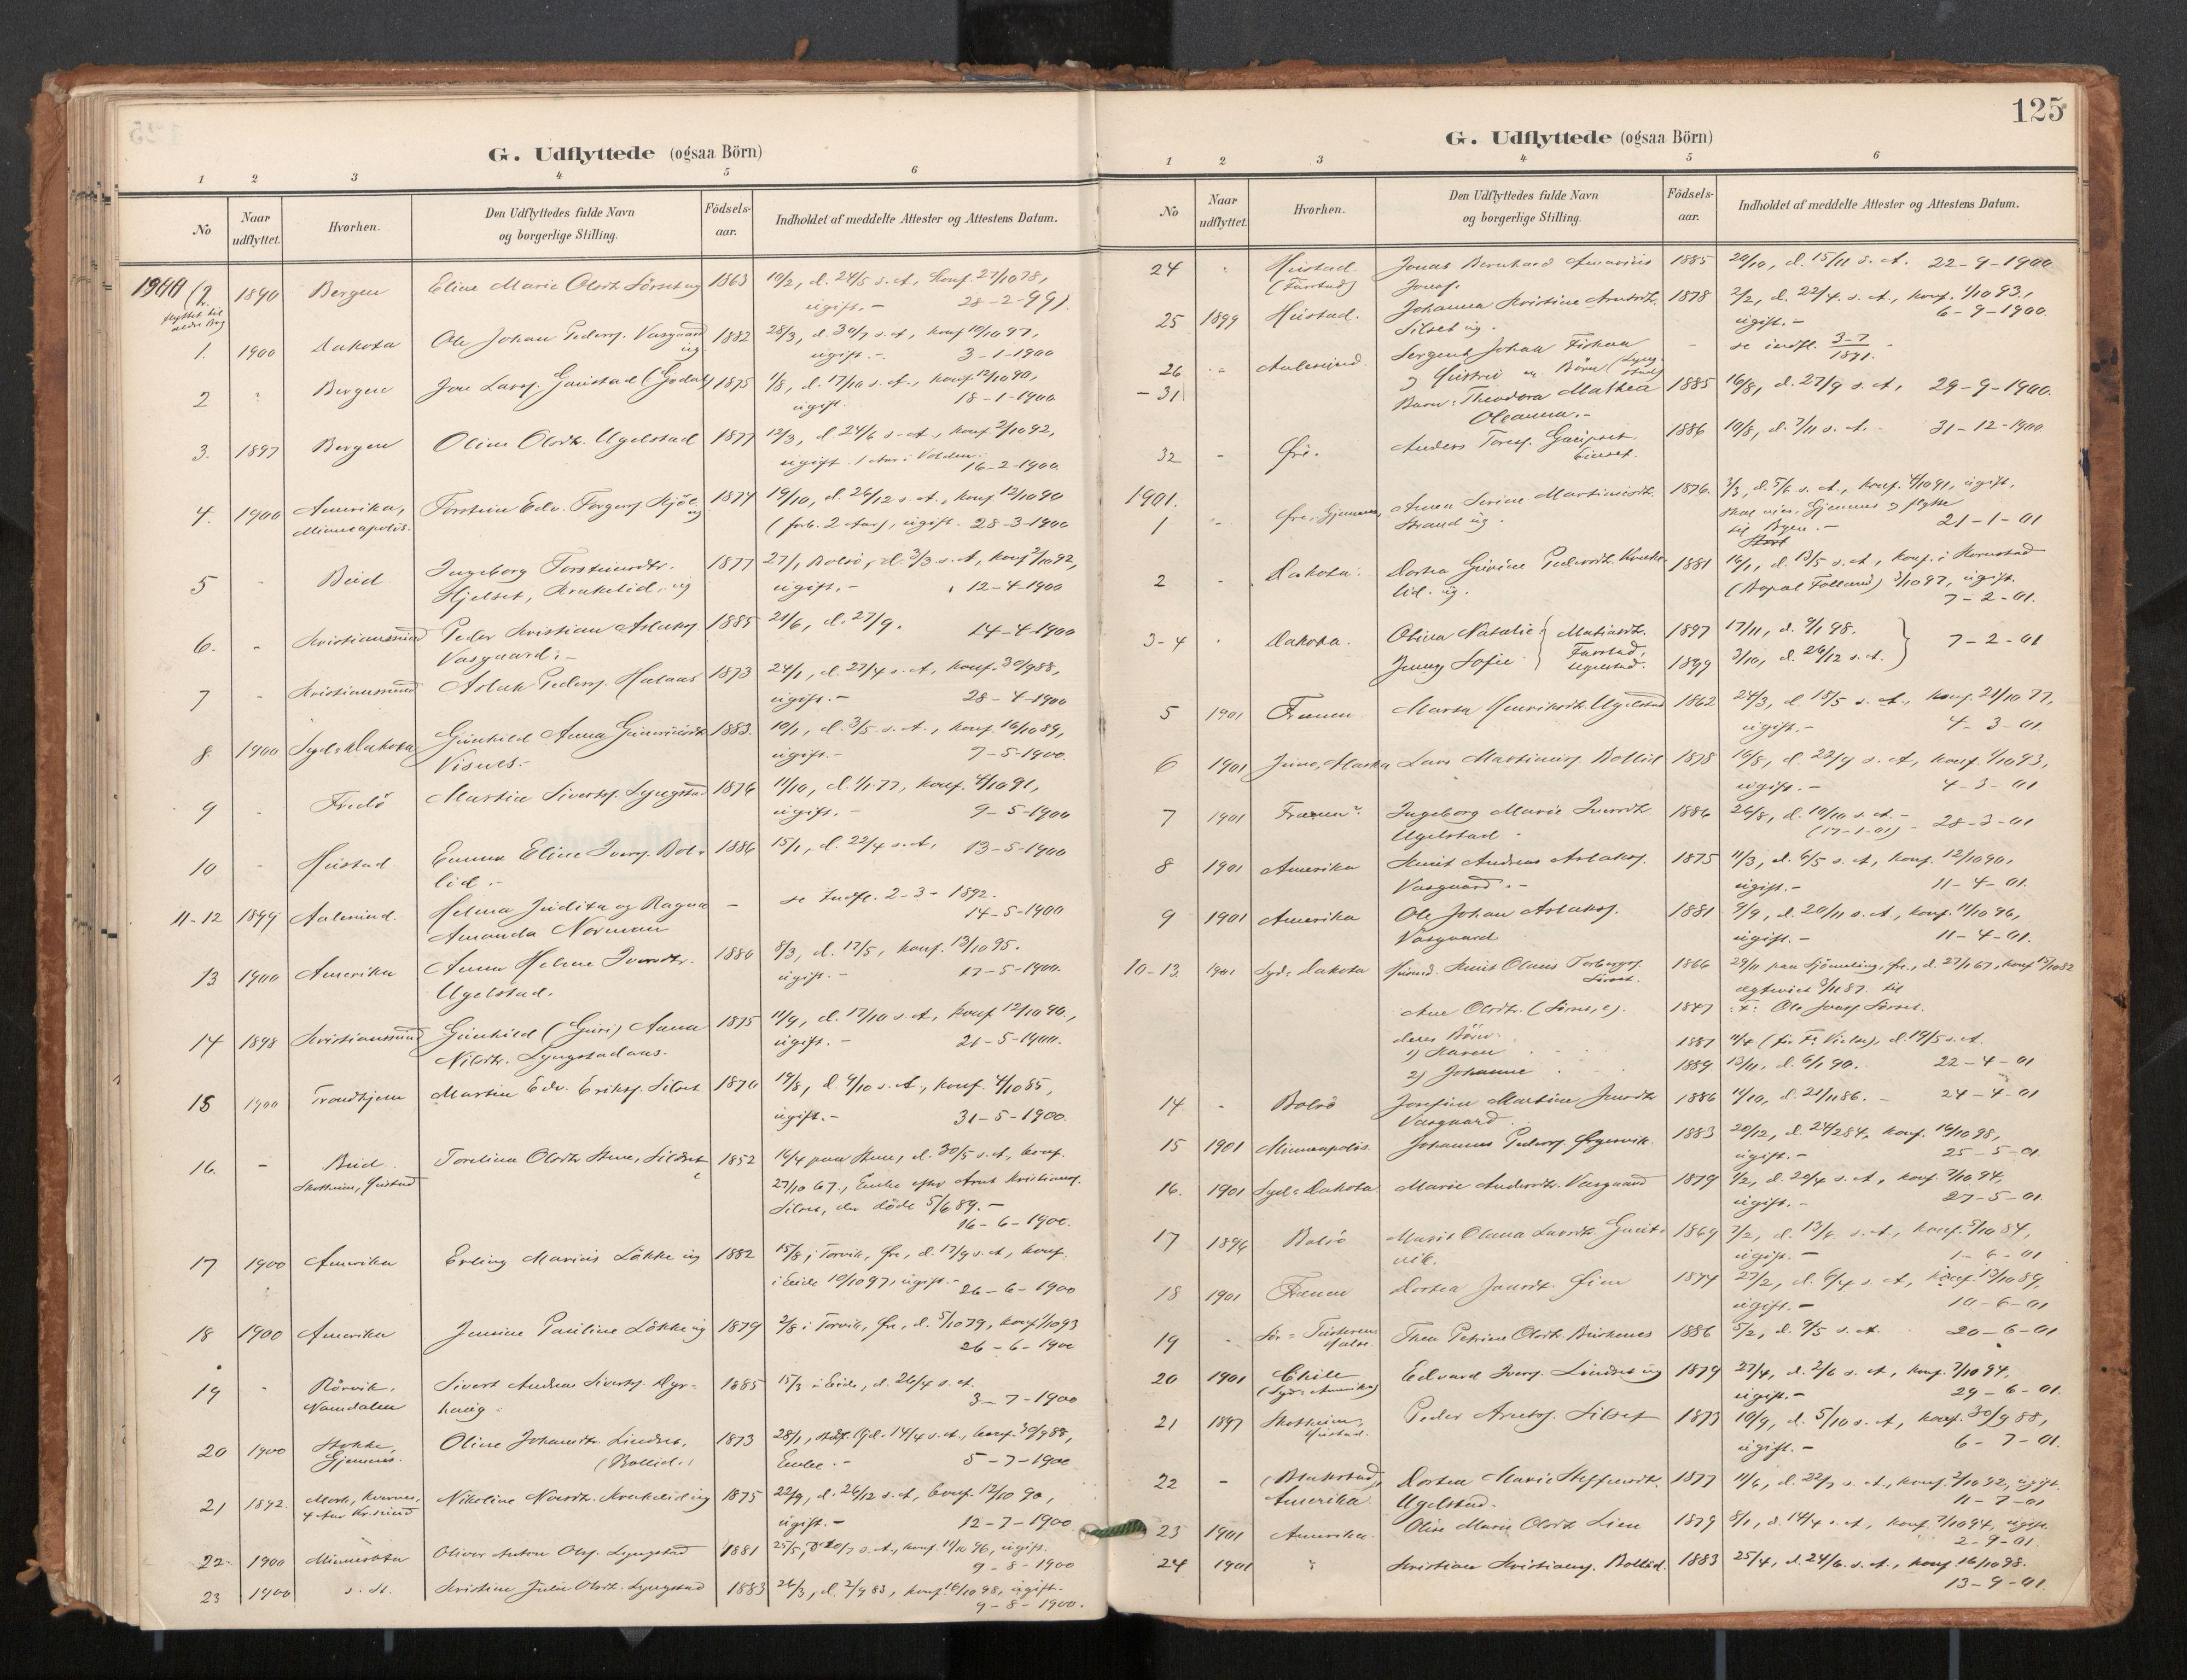 G. Udflyttede (ogsaa Börn)
1 2 3 4 5 6
No Naar udflyttet. Hvorhen. Den Udflyttedes fulde Navn og borgerlige Stilling. Födsels-aar. Indholdet af meddelte Attester og Attestens Datum.
1900
1890 Bergen Eline Marie Olsdtr. 1863 10/2, d. 24/5 s. A, konf. 27/10 78,
ugift.- 28-2-99).
1. 1900 Dakota Ole Johan Peders. Vasgaard 1882 28/3, d. 30/7 s. A, konf 10/10 97,
ug ugift.- 3-1-1900
2 " Bergen Jon Larss. Gaustad (Godal) 1875 1/8, d. 17/10 s. A., konf 12/10 90,
ugift. 18-1-1900
3. 1897 Bergen Oline Olsdtr. Ugelstad 1877 12/3, d. 24/6 s. A., konf 2/10 92,
ugift. 16-2-1900
4. 1900 Amerika, Torstein Edv. Torgers 1874 19/10, d. 26/12 s. A., konf 12/10 90
Minneapolis. ugift. 28-3-1900
5 - Bud Ingeborg Torsteinsdtr. 1877 27/1, Bolsö, d. 3/3 s. A, konf 2/10 92,
Hjelset, Krakelid, ug ugift.- 12-4-1900
6. - Kristianssund Peder Kristian Aslaks. 1885 21/6, d. 27/9. 14-4-1900
Vasgaard.-
7 - Kristianssund Aslak Peders. 1873 24/1, d. 27/4 s. A, konf. 30/9 88,
ugift.- 28-4-1900
8. 1900 Syd-Dakota Gunhild Anna 1883. 10/1, d. 3/5 s. A.,
Visnes.- ugift.- 7-5-1900.
9 - Fredö Martin Siverts. Lyngstad 1876 11/10, d. 1/1 77, konf. 4/10 91,
ugift.- 9-5-1900
10 - Hustad. Emma Eline Ivers. Bol- 1886 15/1, d. 22/4 s. A, 13-5-1900
lid.-
11-12 1899 Aalesund. Helma Judita og Ragna - se Indfl. 2-3-1892.
Amanda Norman 14-5-1900
13 1900 Amerika Anna Helene Iversdtr. 1880 8/3, d. 17/5, konf. 13/10 95.
Ugelstad. ugift.- 17-5-1900.
14 1898 Kristianssund Gunhild (Guri) Anna 1875 11/9, d. 17/10 s. A, konf 12/10 90.,
Nilsdtr. ugift.- 21-5-1900.
15 1900 Trondhjem Martin Edv. Eriks. Silset 1870 14/8, d. 9/10 s. A, konf. 4/10 85,
ugift.- 31-5-1900.
16. - Bud. Torelina Olsdtr. 1852 d. 30/5 s. A, konf.
Skotheim, Hustad 27/10 67., Enke efter Arnt Kristians.
Silset, der döde 5/6 89.-
16-6-1900.
17 1900 Amerika Erling Marius Lökke ug 1882 15/8 i Torvik, Öre, d. 17/9 s. A, konf.
i Eide 10/10 97, ugift.- 26-6-1900
18 1900 Amerika Jensine Pauline Lökke ug 1879 2/8 i Torvik, Öre, d. 5/10 79, konf 1/10 93
26-6-1900
19 - Rörvik, Sivert Andreas Siverts. Dyr- 1885 15/3 i Eide, d. 26/4 s. A.
Namdalen haug. 3-7-1900
20 1900 Stokke, Oline Johansdtr. Lindset, 1873 d. 14/4 s. A., konf. 30/9 88,
Gjemnes. (Bollid.) Enke.- 5-7-1900
21 1892. Kvernes, Nikoline 1875 22/9, d. 26/12 s. A, konf. 12/10 90,
ugift.- 12-7-1900
22. 1900 Minnesota Oliver Anton Ols. Lyngstad 1881 konf 11/10 96, ugift.
9-8-1900
23 1900 s. St. Kristine Julie Olsdtr. Lyngstad 1883 26/3, d. 2/9 83, konf. 16/10 98, ugift.
9-8-1900.
125
G. Udflyttede (ogsaa Börn)
1 2 3 4 5 6
No Naar udflyttet. Hvorhen. Den Udflyttedes fulde Navn og borgerlige Stilling. Födsels-aar. Indholdet af meddelte Attester og Attestens Datum.
24 " Hustad. Jonas Bernhard 1885 20/10, d. 15/11 s. A. 22-9-1900
(Farstad) Jonas.
25 1899 Hustad. Johanna Kristine Arntsdtr. 1878 2/2, d. 22/4. s. A., konf. 1/10 93.,
Silset ug. ugift.- 6-9-1900.
26 Aalesund. Sergent Johan - se indfl. 3-7
-31 Hustru m. Börn 1891.
Barn: Theodora Mathea 1885 16/8, d. 27/9 s. A, 29-9-1900.
Oleanna.-
32 - Öre. Anders Tores. 1886 10/8, d. 7/11 s. A. 31-12-1900.
1901.
1 Öre, Gjemnes, Anna Serine Martinusdtr. 1876. 3/3, d. 5/6 s. A., konf. 4/10 91, ugift,
Strand ug. skal vies, Gjemnes og flytte
til Byen.- 21-1-01
2 - Dakota. Dortea Gurine Pedersdtr. Krake- 1881 16/1, d. 13/5 s. A, konf. i Kornstad
lid. ug. 3/10 97, ugift.
7-2-01.
3-4 " Dakota. Olina Natalie Matiasdtr. 1897 17/11, d. 9/1 98.
Jenny Sofie Farstad, Ugelstad. 1899 3/10, d. 26/12 s. A. 7-2-01
5 1901 Frænen Marta Henriksdtr. Ugelstad 1862 24/3, d. 18/5 s. A., konf. 21/10 77,
ugift.- 4-3-01.
6 1901 Juno, Alaska Lars Martinus. Bollid 1878 16/8, d. 22/9 s. A, konf. 1/10 93,
ugift.- 4-3-01
7 1901 Frænen Ingeborg Marie Iversdtr. 1886 26/8, d. 10/10 s. A.-
Ugelstad (17-1-01) 28-3-01
8 1901 Amerika Knut Andreas Aslaks. 1875 11/3, d. 6/5 s. A, konf. 12/10 90,
Vasgaard.- ugift.- 11-4-01.
9 1901 Amerika Ole Johan Aslaks. 1881 9/9, d. 20/11 s. A, konf. 11/10 96,
Vasgaard ugift.- 11-4-01.
10-13 1901 Syd-Dakota Knut Olaus Torbergs. 1866 d. 27/1 67, konf 15/10 82
ægteviet 9/11 87 til
Ane Olsdtr. 1847
deres Börn:
1) Karen 1887 d. 19/5 s. A.
2) Johanne 1889 13/11, d. 6/1 90. 22-4-01
14 - Bolsö Josefine Martine 1886 11/10, d. 21/11 86.- 24-4-01
Vasgaard
15 1901 Minneapolis. Johannes Peders. 1883 20/12, d. 24/2 84, konf. 16/10 98,
ugift.- 25-5-01
16. 1901 Syd-Dakota Marie Andersdtr. Vasgaard 1879 konf 7/10 94,
ugift.- 27-5-01.
17 1896 Bolsö Marit Olianna Larsdtr. 1869 konf. 5/10 84,
vik. ugift.- 1-6-01
18 1901 Frænen Dortea Jonsdtr. Öien 1874 27/2, d. 6/4 s. A, konf. 13/10 89,
ugift.- 10-6-01
19 - Thea Petrine Olsdtr. Birkenes 1886 5/2, d. 9/5 s. A. 20-6-01
20 1901 Chile Edvard Ivers. Lindset ug 1879 27/4, d. 2/6 s. A, konf. 7/10 94,
(Syd-Amerika) ugift.- 29-6-01.
21 1897 Skotheim, Peder Arnts. Silset 1873 10/9, d. 5/10 s. A, konf. 30/9 88,
Hustad. ugift.- 6-7-01.
22 - Dortea Marie Steffensdtr. 1877 11/6, d. 22/7 s. A., konf. 2/10 92, ugift.
Amerika Ugelstad. 11-7-01
23 1901 Amerika. Oline Marie Olsdtr. Lien 1879 8/1, d. 14/4 s. A, konf. 7/10 94, ugift.
2-9-01.
24 1901 " Kristian Kristians. Bollid. 1883 25/4, d. 24/6. s. A., konf. 16/10 98.
13-9-01.